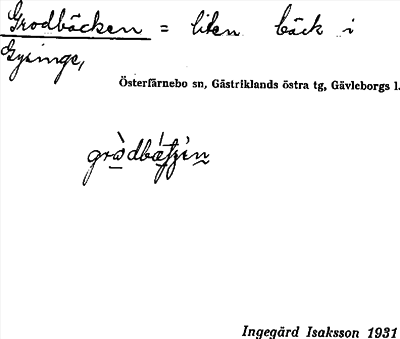 Grodbäcken = liten bäck i
Gysinge,
Österfärnebo sn, Gästriklands östra tg, Gävleborgs l.
Ingegärd Isaksson 1931